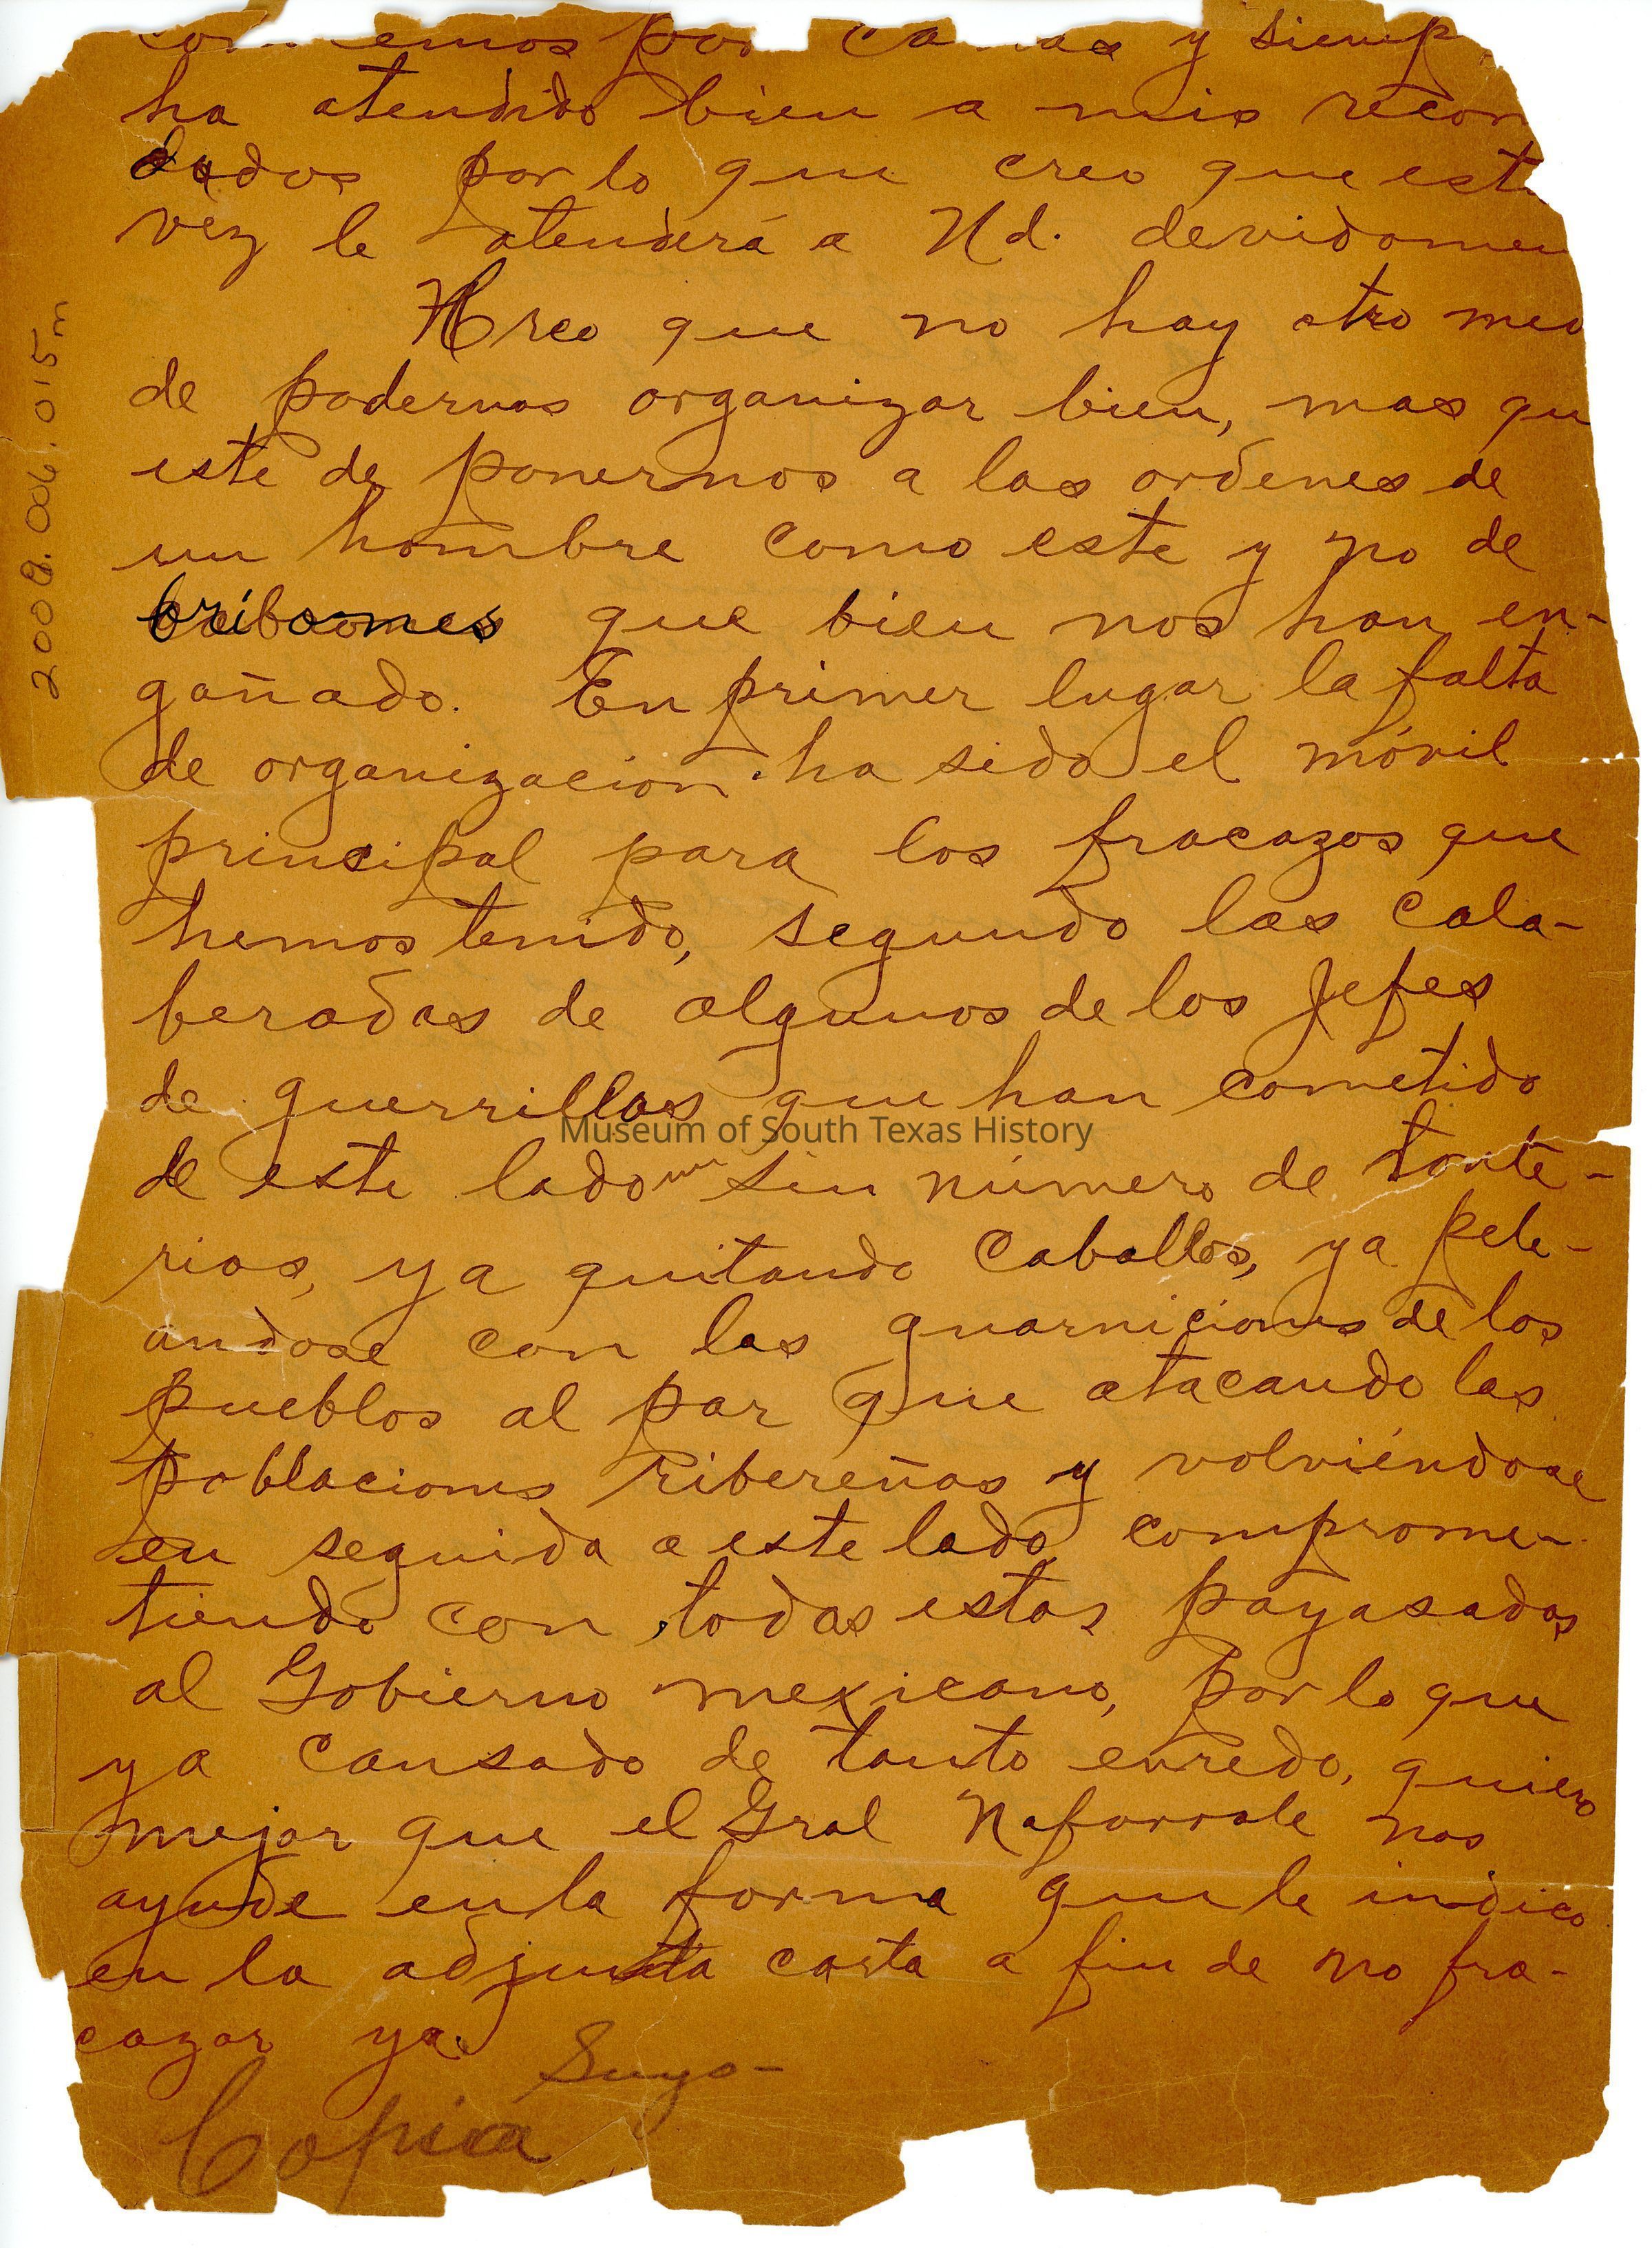 emos por ca as y siemp
ha atendido bien a mis recom
dados por lo que creo que est
vez le atenderá a Ud. devidamen
Creo que no hay otro med
de podernos organizar bien, mas qu
este de ponernos a las ordenes de
un hombre como este y no de
bribones que bien nos han en-
gañado. En primer lugar la falta
de organizacion ha sido el móvil
principal para los fracazos que
hemos tenido, segundo las cala-
beradas de algunos de los Jefes
de guerrillas que han cometido
de este lado un sin número de tonte-
rias, ya quitando Caballos, ya pele-
andose con las guarniciones de los
pueblos al par que atacando las
poblaciones ribereñas y volviéndose
en seguida a este lado comprome-
tiendo con todas estas payasadas
al Gobierno mexicano, por lo que
ya cansado de tanto enredo, quiero
mejor que el Gral Nafarrate nos
ayude en la forma que le indico
en la adjunta carta a fin de no fra-
cazar ya.
Suyo-
Copia
2009.006.015m
Museum of South Texas History